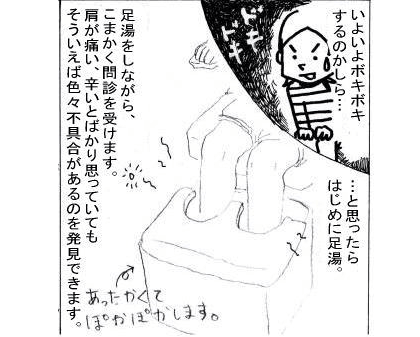 いよいよボキボキ
するのかしら…
ドキ
ドキ
…と思ったら
はじめに足湯。
足湯をしながら、
こまかく問診を受けます。
肩が痛い、辛いとばかり思っていても
そういえば色々不具合があるのを発見できます。
あったかくて
ぽかぽかします。